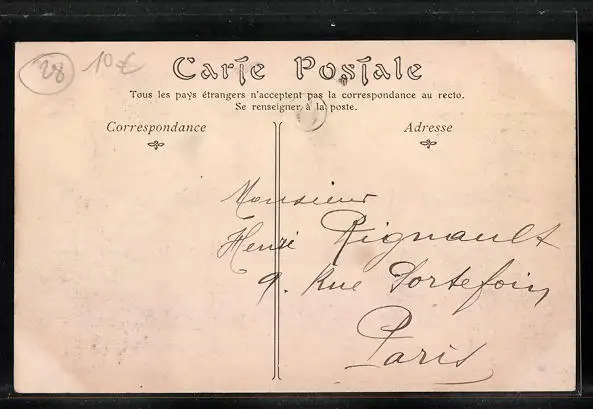 28 10 €
Carte Postale
Tous les pays étrangers n'acceptent pas la correspondance au recto.
Se renseigner à la poste.
Correspondance Adresse
Monsieur
Henri Rignault
9. Rue Portefoin
Paris